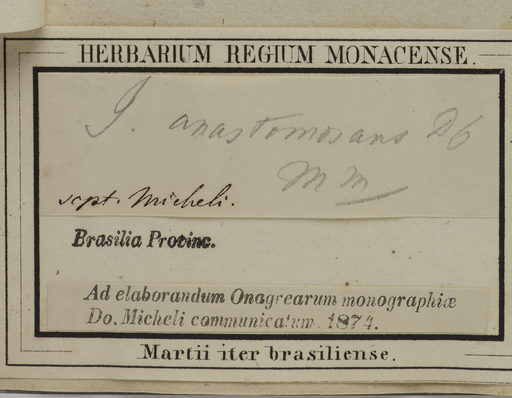 HERBARIUM REGIUM MONACENSE.
J. anastomosans DC
M m
scpt. Micheli.
Brasilia Provinc.
Ad elaborandum Onagrearum monographiæ
Do. Micheli communicatum. 1874.
Martii iter brasiliense.